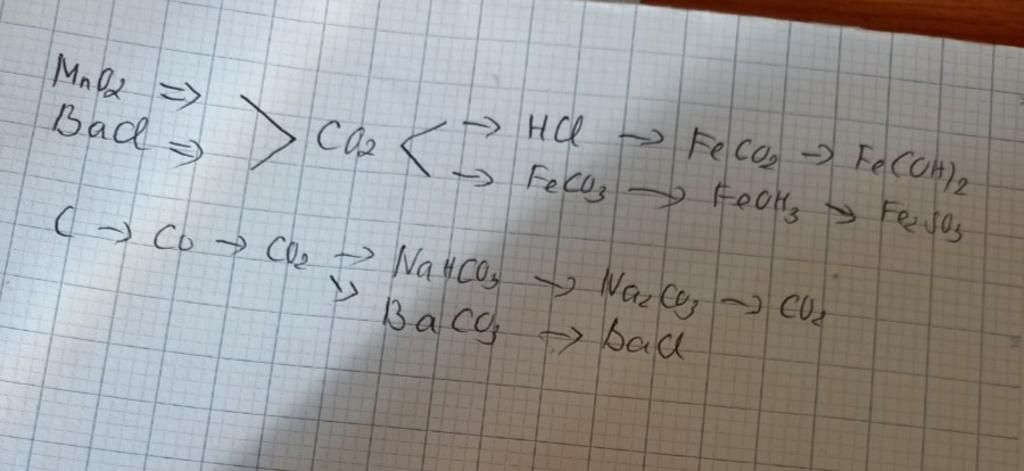 MnO2 ⇒
BaCl ⇒
> CO2 <
→ HCl → FeCO2 → Fe(OH)2
→ FeCO3 → FeOH3 → Fe2SO3
C → CO → CO2 → NaHCO3 → Na2CO3 → CO2
↘ BaCO3 → BaCl